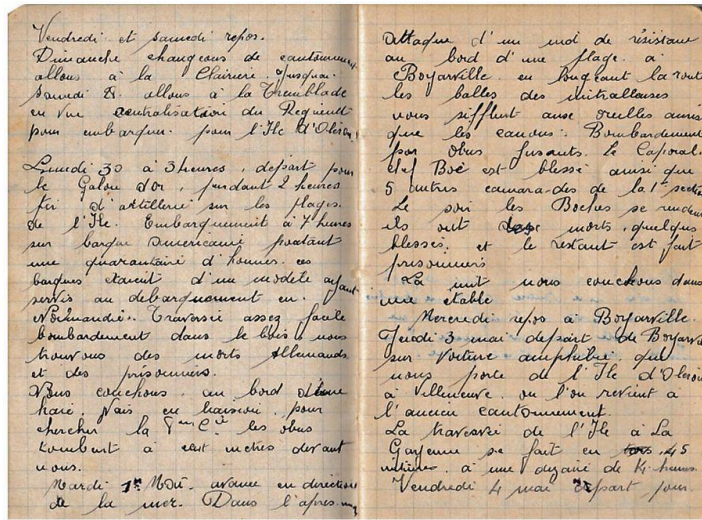 Vendredi et samedi repos.
Dimanche changeons de cantonnement
allons à la Clairière. Jusquau
samedi 28. allons à la Tremblade
en vue centralisation du Régiment
pour embarquer. pour l'Ile d'Oléron.
Lundi 30 à 3 heures, départ pour
le Galon d'Or, pendant 2 heures
tir d'artillerie sur les plages.
de l'Ile. Embarquement à 7 heures
sur barque américaine portant
une quarantaine d'hommes. ces
barques étaient d'un modèle ayant
servis au débarquement en.
Normandie. Traversée assez facile
bombardement dans le bois, nous
trouvons des morts Allemands
et des prisonniers.
Nous couchons au bord d'une
haie. Vais en liaison, pour
chercher la Cie. les obus
tombent à cent mètres devant
nous.
Mardi 1er Mai. avance en direction
de la mer. Dans l'après-mi
Attaque d'un nid de résistance
au bord d'une plage. à
Boyarville. en longeant la route
les balles des mitrailleuses
nous sifflent aux oreilles ainsi
que les canons. Bombardement
par obus fusants. Le Caporal.
chef Boé est blessé ainsi que
5 autres camarades de la 1re section
Le soir les Boches se rendent
ils ont des morts, quelques
blessés, et le restant est fait
prisonniers
La nuit nous couchons dans
une étable
Mercredi repos à Boyarville.
Jeudi 3 mai départ de Boyarville
sur voiture amphibie qui
nous porte de l'Ile d'Oléron
à Villeneuve, ou l'on revient à
l'ancien cantonnement.
La traversée de l'Ile à La
Garenne se fait en 45
minutes, à une dizaine de K. heures
Vendredi 4 mai départ pour